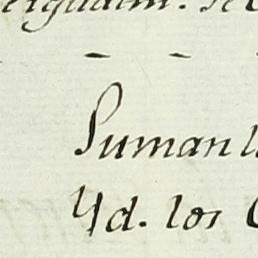 Suman l
Yd. los